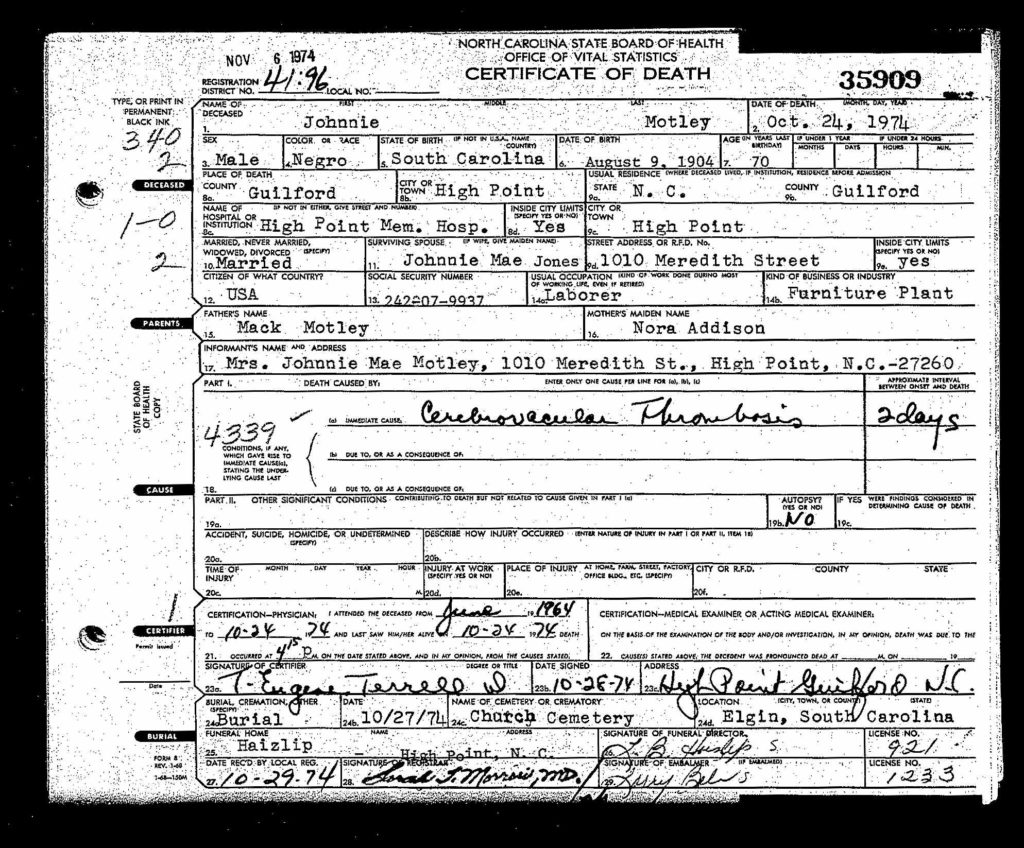 NORTH CAROLINA STATE BOARD OF HEALTH
OFFICE OF VITAL STATISTICS
CERTIFICATE OF DEATH
NOV 6 1974
REGISTRATION DISTRICT NO. 41:96 LOCAL NO.
35909
TYPE, OR PRINT IN PERMANENT BLACK INK
340
2
1. NAME OF DECEASED FIRST MIDDLE LAST Johnnie Motley
2. DATE OF DEATH (MONTH, DAY, YEAR) Oct. 24, 1974
3. SEX Male
4. COLOR OR RACE Negro
5. STATE OF BIRTH (IF NOT IN U.S.A. NAME COUNTRY) South Carolina
6. DATE OF BIRTH August 9, 1904
7. AGE (IN YEARS LAST BIRTHDAY) 70 IF UNDER 1 YEAR MONTHS DAYS IF UNDER 24 HOURS HOURS MIN.
DECEASED
PLACE OF DEATH
8a. COUNTY Guilford
8b. CITY OR TOWN High Point
USUAL RESIDENCE (WHERE DECEASED LIVED, IF INSTITUTION, RESIDENCE BEFORE ADMISSION
9a. STATE N. C.
9b. COUNTY Guilford
1-0
8c. NAME OF HOSPITAL OR INSTITUTION (IF NOT IN EITHER, GIVE STREET AND NUMBER) High Point Mem. Hosp.
8d. INSIDE CITY LIMITS (SPECIFY YES OR NO) Yes
9c. CITY OR TOWN High Point
2
10. MARRIED, NEVER MARRIED, WIDOWED, DIVORCED (SPECIFY) Married
11. SURVIVING SPOUSE (IF WIFE, GIVE MAIDEN NAME) Johnnie Mae Jones
9d. STREET ADDRESS OR R.F.D. No. 1010 Meredith Street
9e. INSIDE CITY LIMITS (SPECIFY YES OR NO) yes
12. CITIZEN OF WHAT COUNTRY? USA
13. SOCIAL SECURITY NUMBER 242-07-9937
14a. USUAL OCCUPATION (KIND OF WORK DONE DURING MOST OF WORKING LIFE, EVEN IF RETIRED) Laborer
14b. KIND OF BUSINESS OR INDUSTRY Furniture Plant
PARENTS
15. FATHER'S NAME Mack Motley
16. MOTHER'S MAIDEN NAME Nora Addison
17. INFORMANT'S NAME AND ADDRESS Mrs. Johnnie Mae Motley, 1010 Meredith St., High Point, N.C.-27260
STATE BOARD OF HEALTH COPY
PART I. DEATH CAUSED BY: ENTER ONLY ONE CAUSE PER LINE FOR (a), (b), (c)
APPROXIMATE INTERVAL BETWEEN ONSET AND DEATH
(a) IMMEDIATE CAUSE, Cerebrovacular Thrombosis 2 days
4339
CONDITIONS, IF ANY, WHICH GAVE RISE TO IMMEDIATE CAUSE(s), STATING THE UNDERLYING CAUSE LAST
(b) DUE TO, OR AS A CONSEQUENCE OF:
CAUSE
18. (c) DUE TO, OR AS A CONSEQUENCE OF:
19a. PART II. OTHER SIGNIFICANT CONDITIONS CONTRIBUTING TO DEATH BUT NOT RELATED TO CAUSE GIVEN IN PART I (a)
19b. AUTOPSY? (YES OR NO) NO
19c. IF YES WERE FINDINGS CONSIDERED IN DETERMINING CAUSE OF DEATH
20a. ACCIDENT, SUICIDE, HOMICIDE, OR UNDETERMINED (SPECIFY)
20b. DESCRIBE HOW INJURY OCCURRED (ENTER NATURE OF INJURY IN PART I OR PART II, ITEM 18)
20c. TIME OF INJURY MONTH DAY YEAR HOUR M.
20d. INJURY AT WORK (SPECIFY YES OR NO)
20e. PLACE OF INJURY AT HOME, FARM, STREET, FACTORY, OFFICE BLDG., ETC. (SPECIFY)
20f. CITY OR R.F.D. COUNTY STATE
1
CERTIFIER
Permit Issued
Date
CERTIFICATION—PHYSICIAN: I ATTENDED THE DECEASED FROM June 1964
TO 10-24 1974 AND LAST SAW HIM/HER ALIVE 10-24 1974 DEATH
21. OCCURRED AT 4 15 P M. ON THE DATE STATED ABOVE, AND IN MY OPINION, FROM THE CAUSES STATED.
CERTIFICATION—MEDICAL EXAMINER OR ACTING MEDICAL EXAMINER:
ON THE BASIS OF THE EXAMINATION OF THE BODY AND/OR INVESTIGATION, IN MY OPINION, DEATH WAS DUE TO THE
22. CAUSE(S) STATED ABOVE, THE DECEDENT WAS PRONOUNCED DEAD AT M, ON 19
23a. SIGNATURE OF CERTIFIER DEGREE OR TITLE T. Eugene Terrell
23b. DATE SIGNED 10-28-74
23c. ADDRESS High Point Guilford N.C.
24a. BURIAL, CREMATION, OTHER (SPECIFY) Burial
24b. DATE 10/27/74
24c. NAME OF CEMETERY OR CREMATORY Church Cemetery
24d. LOCATION (CITY, TOWN, OR COUNTY) (STATE) Elgin, South Carolina
BURIAL
25. FUNERAL HOME NAME ADDRESS Haizlip - High Point, N. C.
26. SIGNATURE OF FUNERAL DIRECTOR
LICENSE NO. 921
FORM 8
REV. 1-68
1-68—150M
27. DATE REC'D BY LOCAL REG. 10-29-74
28. SIGNATURE OF REGISTRAR Sarah T. Morrow, MD.
SIGNATURE OF EMBALMER (IF EMBALMED)
LICENSE NO. 1233